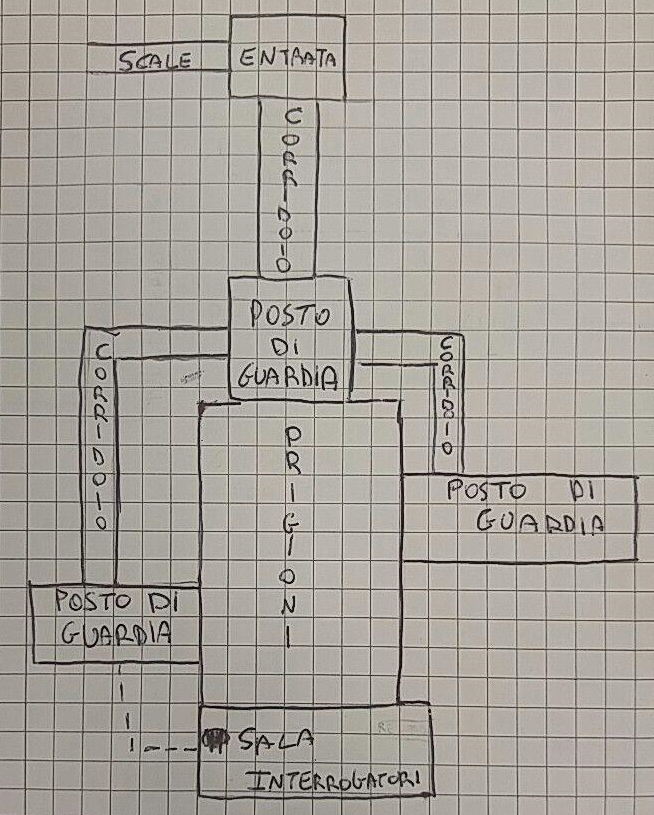 SCALE
ENTRATA
CORRIDOIO
POSTO
DI
GUARDIA
CORRIDOIO
CORRIDOIO
PRIGIONI
POSTO DI
GUARDIA
POSTO DI
GUARDIA
SALA
INTERROGATORI